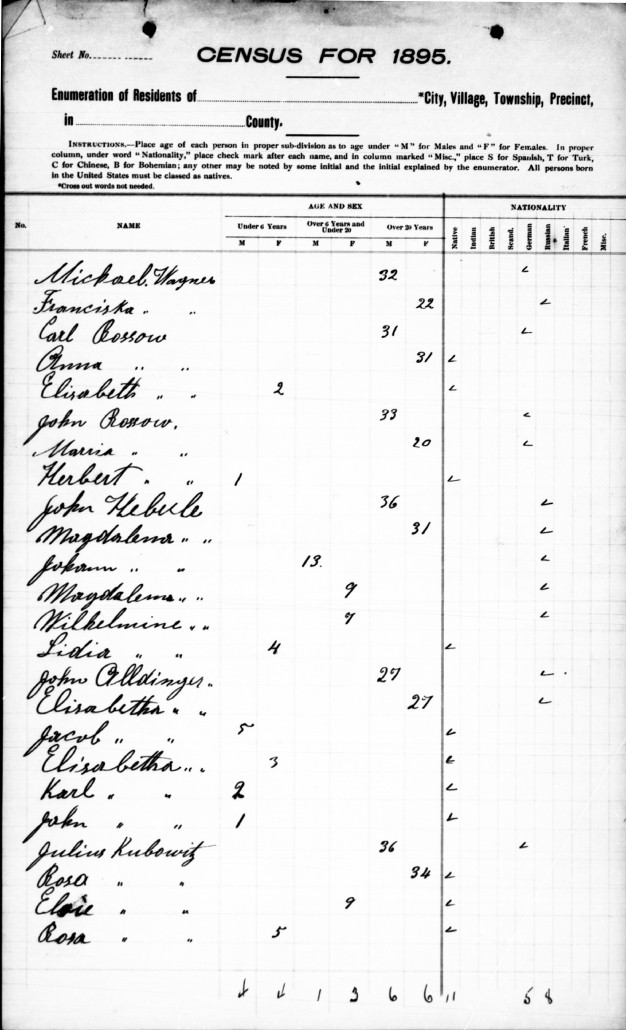 Sheet No.
CENSUS FOR 1895.
Enumeration of Residents of *City, Village, Township, Precinct,
in County.
INSTRUCTIONS.—Place age of each person in proper sub-division as to age under "M" for Males and "F" for Females. In proper
column, under word "Nationality," place check mark after each name, and in column marked "Misc.," place S for Spanish, T for Turk,
C for Chinese, B for Bohemian; any other may be noted by some initial and the initial explained by the enumerator. All persons born
in the United States must be classed as natives.
*Cross out words not needed.
AGE AND SEX NATIONALITY
No. NAME Under 6 Years Over 6 Years and Under 20 Over 20 Years Native Indian British Scand. German Russian Italian French Misc.
M F M F M F
Michael Wagner 32 ✓
Franciska " " 22 ✓
Carl Rossow 31 ✓
Anna " " 31 ✓
Elisabeth " " 2 ✓
John Rossow. 33 ✓
Maria " " 20 ✓
Herbert " " 1 ✓
John Heberle 36 ✓
Magdalena " " 31 ✓
Johann " " 13. ✓
Magdalena " " 9 ✓
Wilhelmine " " 7 ✓
Lidia " " 4 ✓
John Alldinger. 27 ✓
Elisabetha " " 27 ✓
Jacob " " 5 ✓
Elisabetha " " 3 ✓
Karl " " 2 ✓
John " " 1 ✓
Julius Kubowitz 36 ✓
Rosa " " 34 ✓
" " 9 ✓
Rosa " " 5 ✓
4 4 1 3 6 6 11 5 8